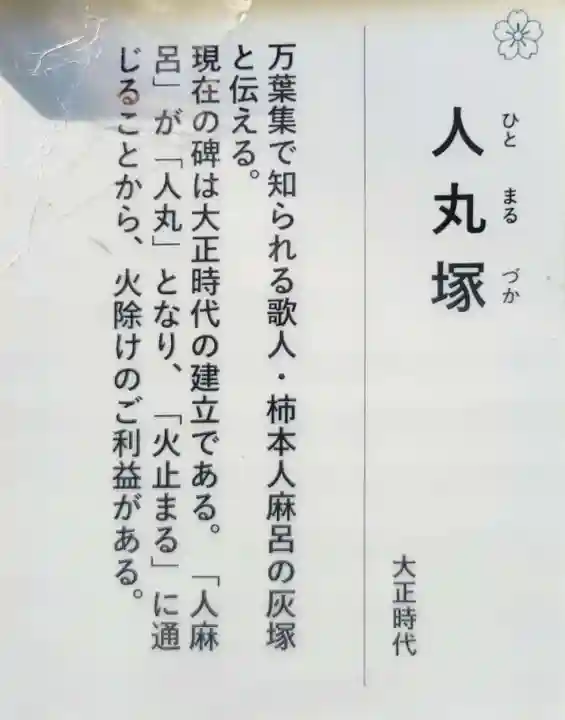 人丸塚
ひと まる づか
大正時代
万葉集で知られる歌人・柿本人麻呂の灰塚
と伝える。
現在の碑は大正時代の建立である。「人麻
呂」が「人丸」となり、「火止まる」に通
じることから、火除けのご利益がある。